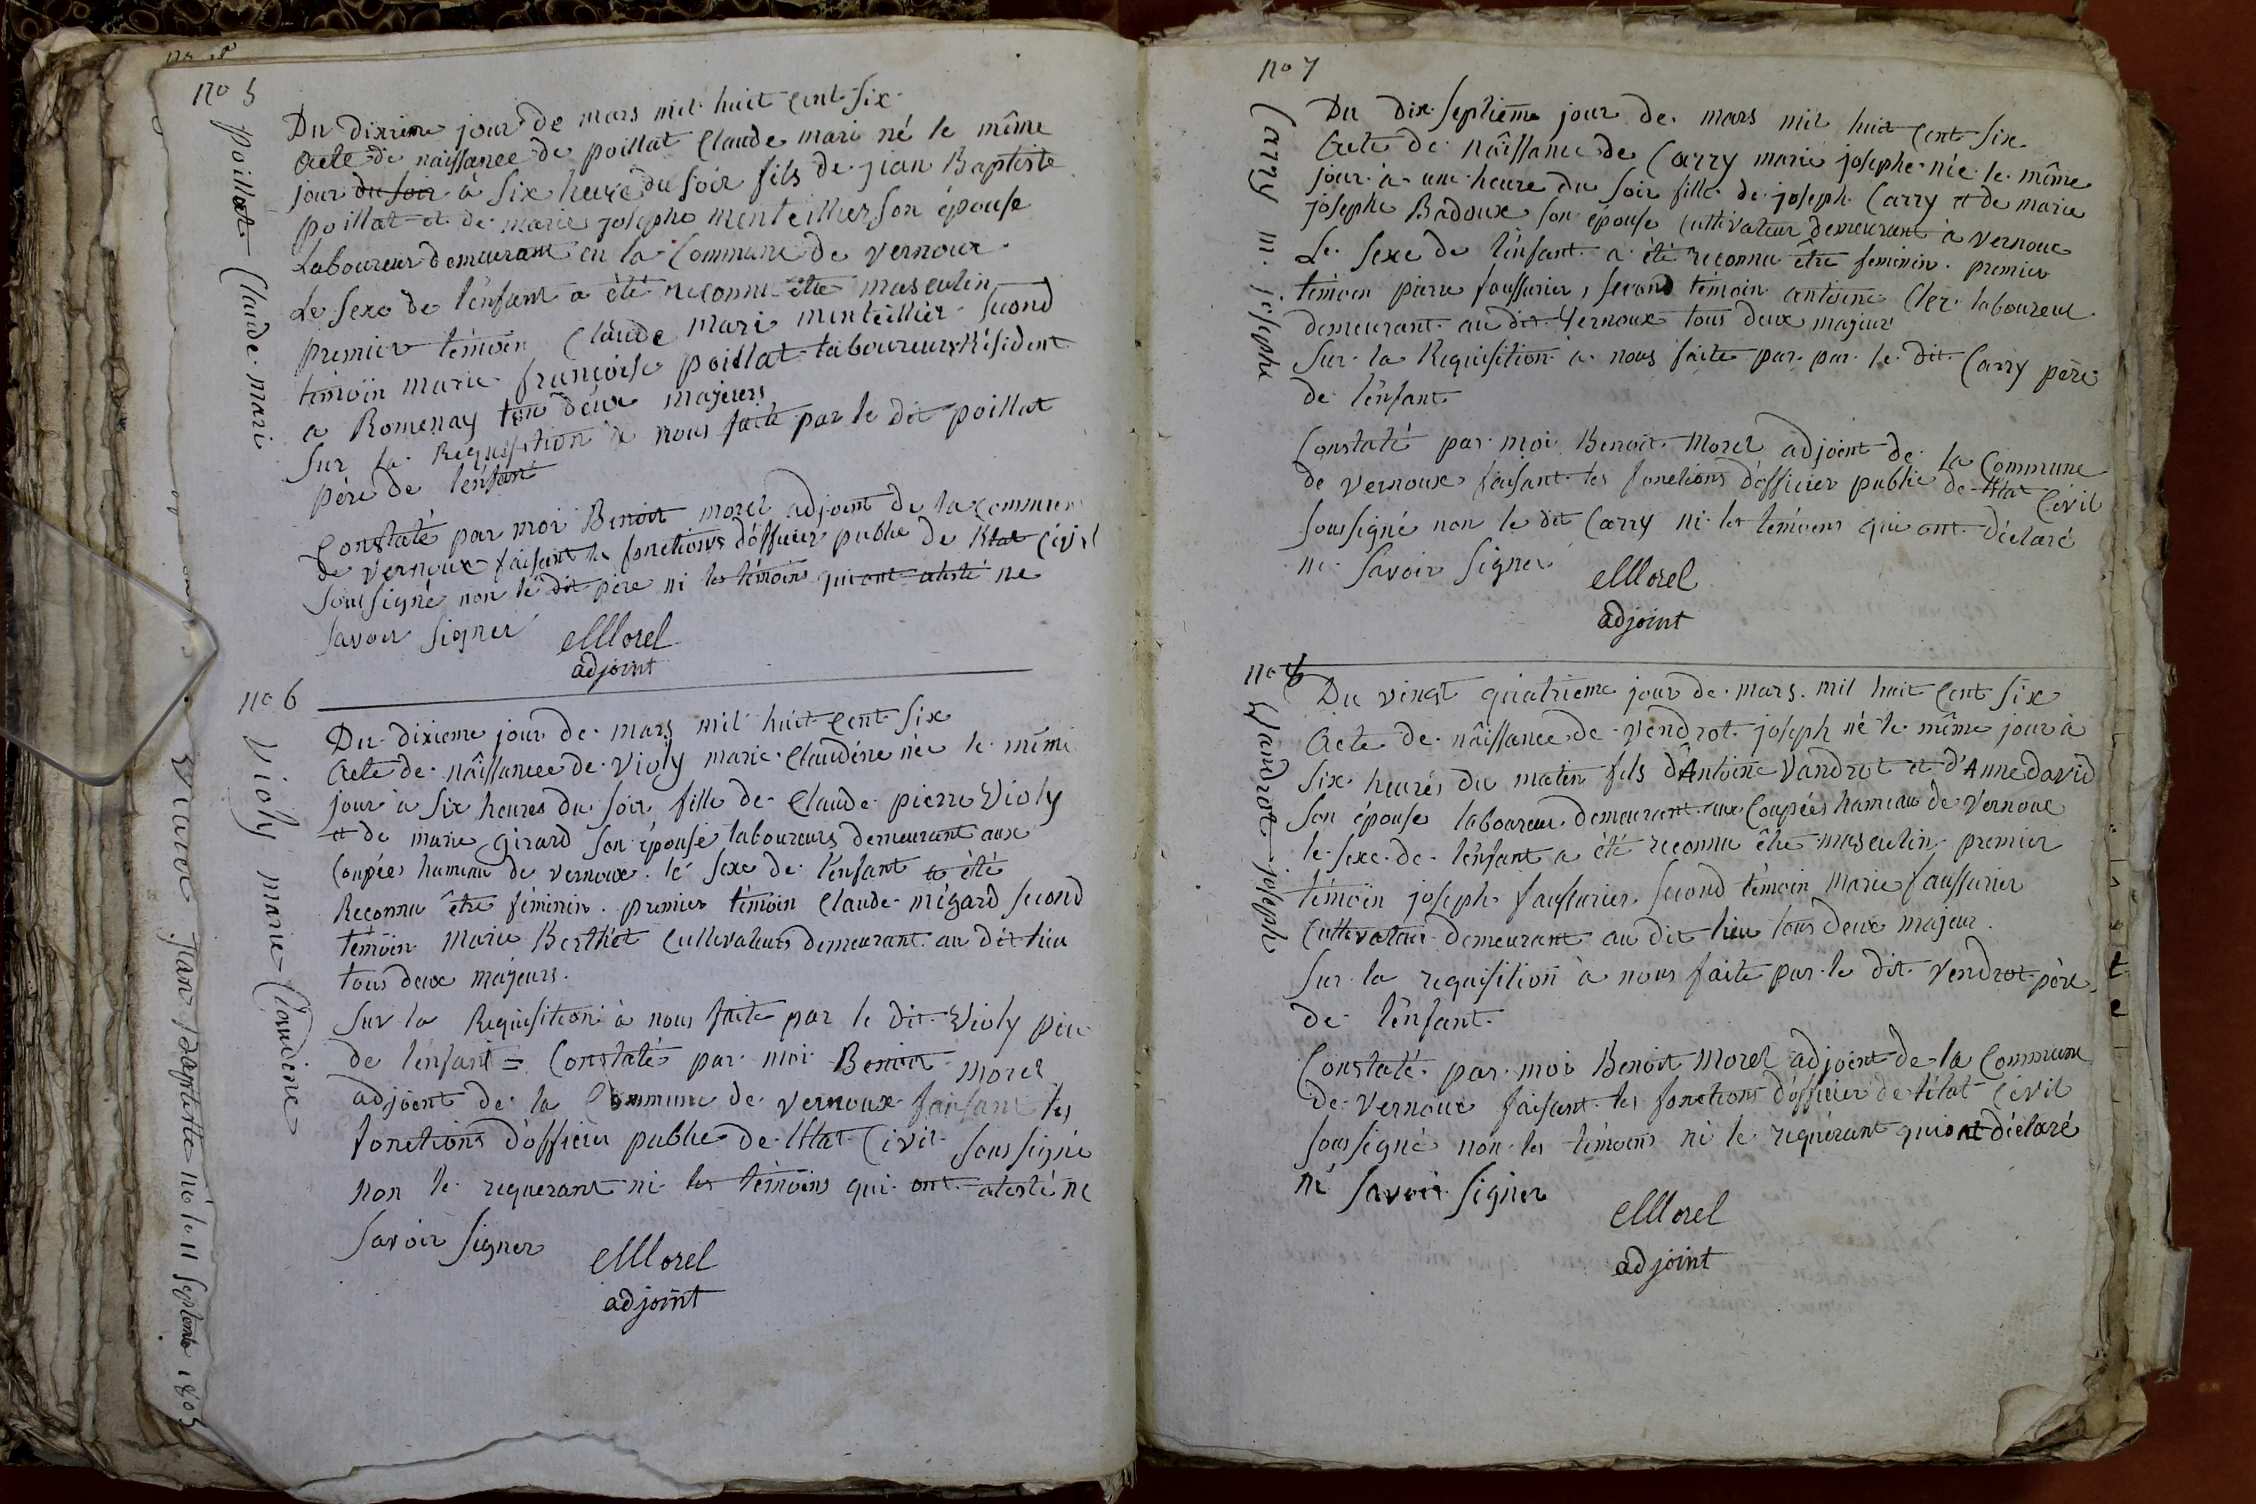 no 5
poillat Claude mari
Du dixieme jour de mars mil huit Cent Six
Acte de naissance de poillat Claude mari né le même
jour du soir à Six heure du soir fils de jean Baptiste
poillat et de marie josephe menteillier son épouse
Laboureur demeurant en la Commune de vernoux
Le Sexe de l'enfant a été reconnu être masculin
premier témoin Claude Mari menteillier second
témoin marie françoise poillat laboureurs Résident
a Romenay tou deux majeurs
Sur la Requisition a nous faite par le dit poillat
père de l'enfant
Constaté par moi Benoit morel adjoint de la commune
de vernoux faisant les fonctions d'officier public de l'état Civil
soussigné non le dit père ni les témoins qui ont atesté ne
savoir signer
eMorel
adjoint
no 6
Violy marie Claudine
Du dixieme jour de mars mil huit Cent Six
Acte de nâissance de Violy marie Claudine née le même
jour à six heures du soir fille de Claude pierre Violy
et de marie Girard son épouse laboureurs demeurant aux
Coupées hameau de vernoux le sexe de l'enfant a été
Reconnu être féminin premier témoin Claude mégard second
témoin Marie Berthet Cultivateurs demeurant au dit lieu
tous deux majeurs.
Sur la Requisition à nous faite par le dit Violy père
de l'enfant = Constaté par moi Benoit morel
adjoint de la Commune de vernoux faisant les
fonctions d'officier public de l'état Civil soussigné
non le requerant ni les témoins qui ont atesté ne
savoir signer
eMorel
adjoint
Jean Baptiste né le 11 septembre 1805
no 7
Carry m. josephe
Du dix septieme jour de mars mil huit Cent Six
Acte de nâissance de Carry marie josephe née le même
jour à une heure du soir fille de joseph Carry et de marie
josephe Badoux son épouse Cultivateur demeurant à vernoux
Le Sexe de l'enfant a été reconnu être feminin premier
témoin pierre faussurier, second témoin antoine Cler laboureur
demeurant au dit Vernoux tous deux majeur
Sur la Requisition à nous faite par par le dit Carry père
de l'enfant
Constaté par moi Benoit Morel adjoint de la Commune
de vernoux faisant les fonctions d'officier public de l'état Civil
soussigné non le dit Carry ni les témoins qui ont déclaré
ne savoir signer
eMorel
adjoint
no 8
Vandrot joseph
Du vingt quatrieme jour de mars mil huit Cent Six
Acte de nâissance de vendrot joseph né le même jour à
Six heurés du matin fils d'Antoine Vandrot et d'Anne david
Son épouse laboureur demeurant aux Coupées hameau de vernoux
le sexe de l'enfant a été reconnu être masculin premier
témoin joseph faussurier second témoin Marie faussurier
Cultivateur demeurant au dit lieu tous deux majeur
Sur la requisition à nous faite par le dit vendrot père
de l'enfant
Constaté par moi Benoit Morel adjoint de la Commune
de vernoux faisant les fonctions d'officier de l'état Civil
soussigné non les témoins ni le requérant qui ont déclaré
né savoir signer
eMorel
adjoint